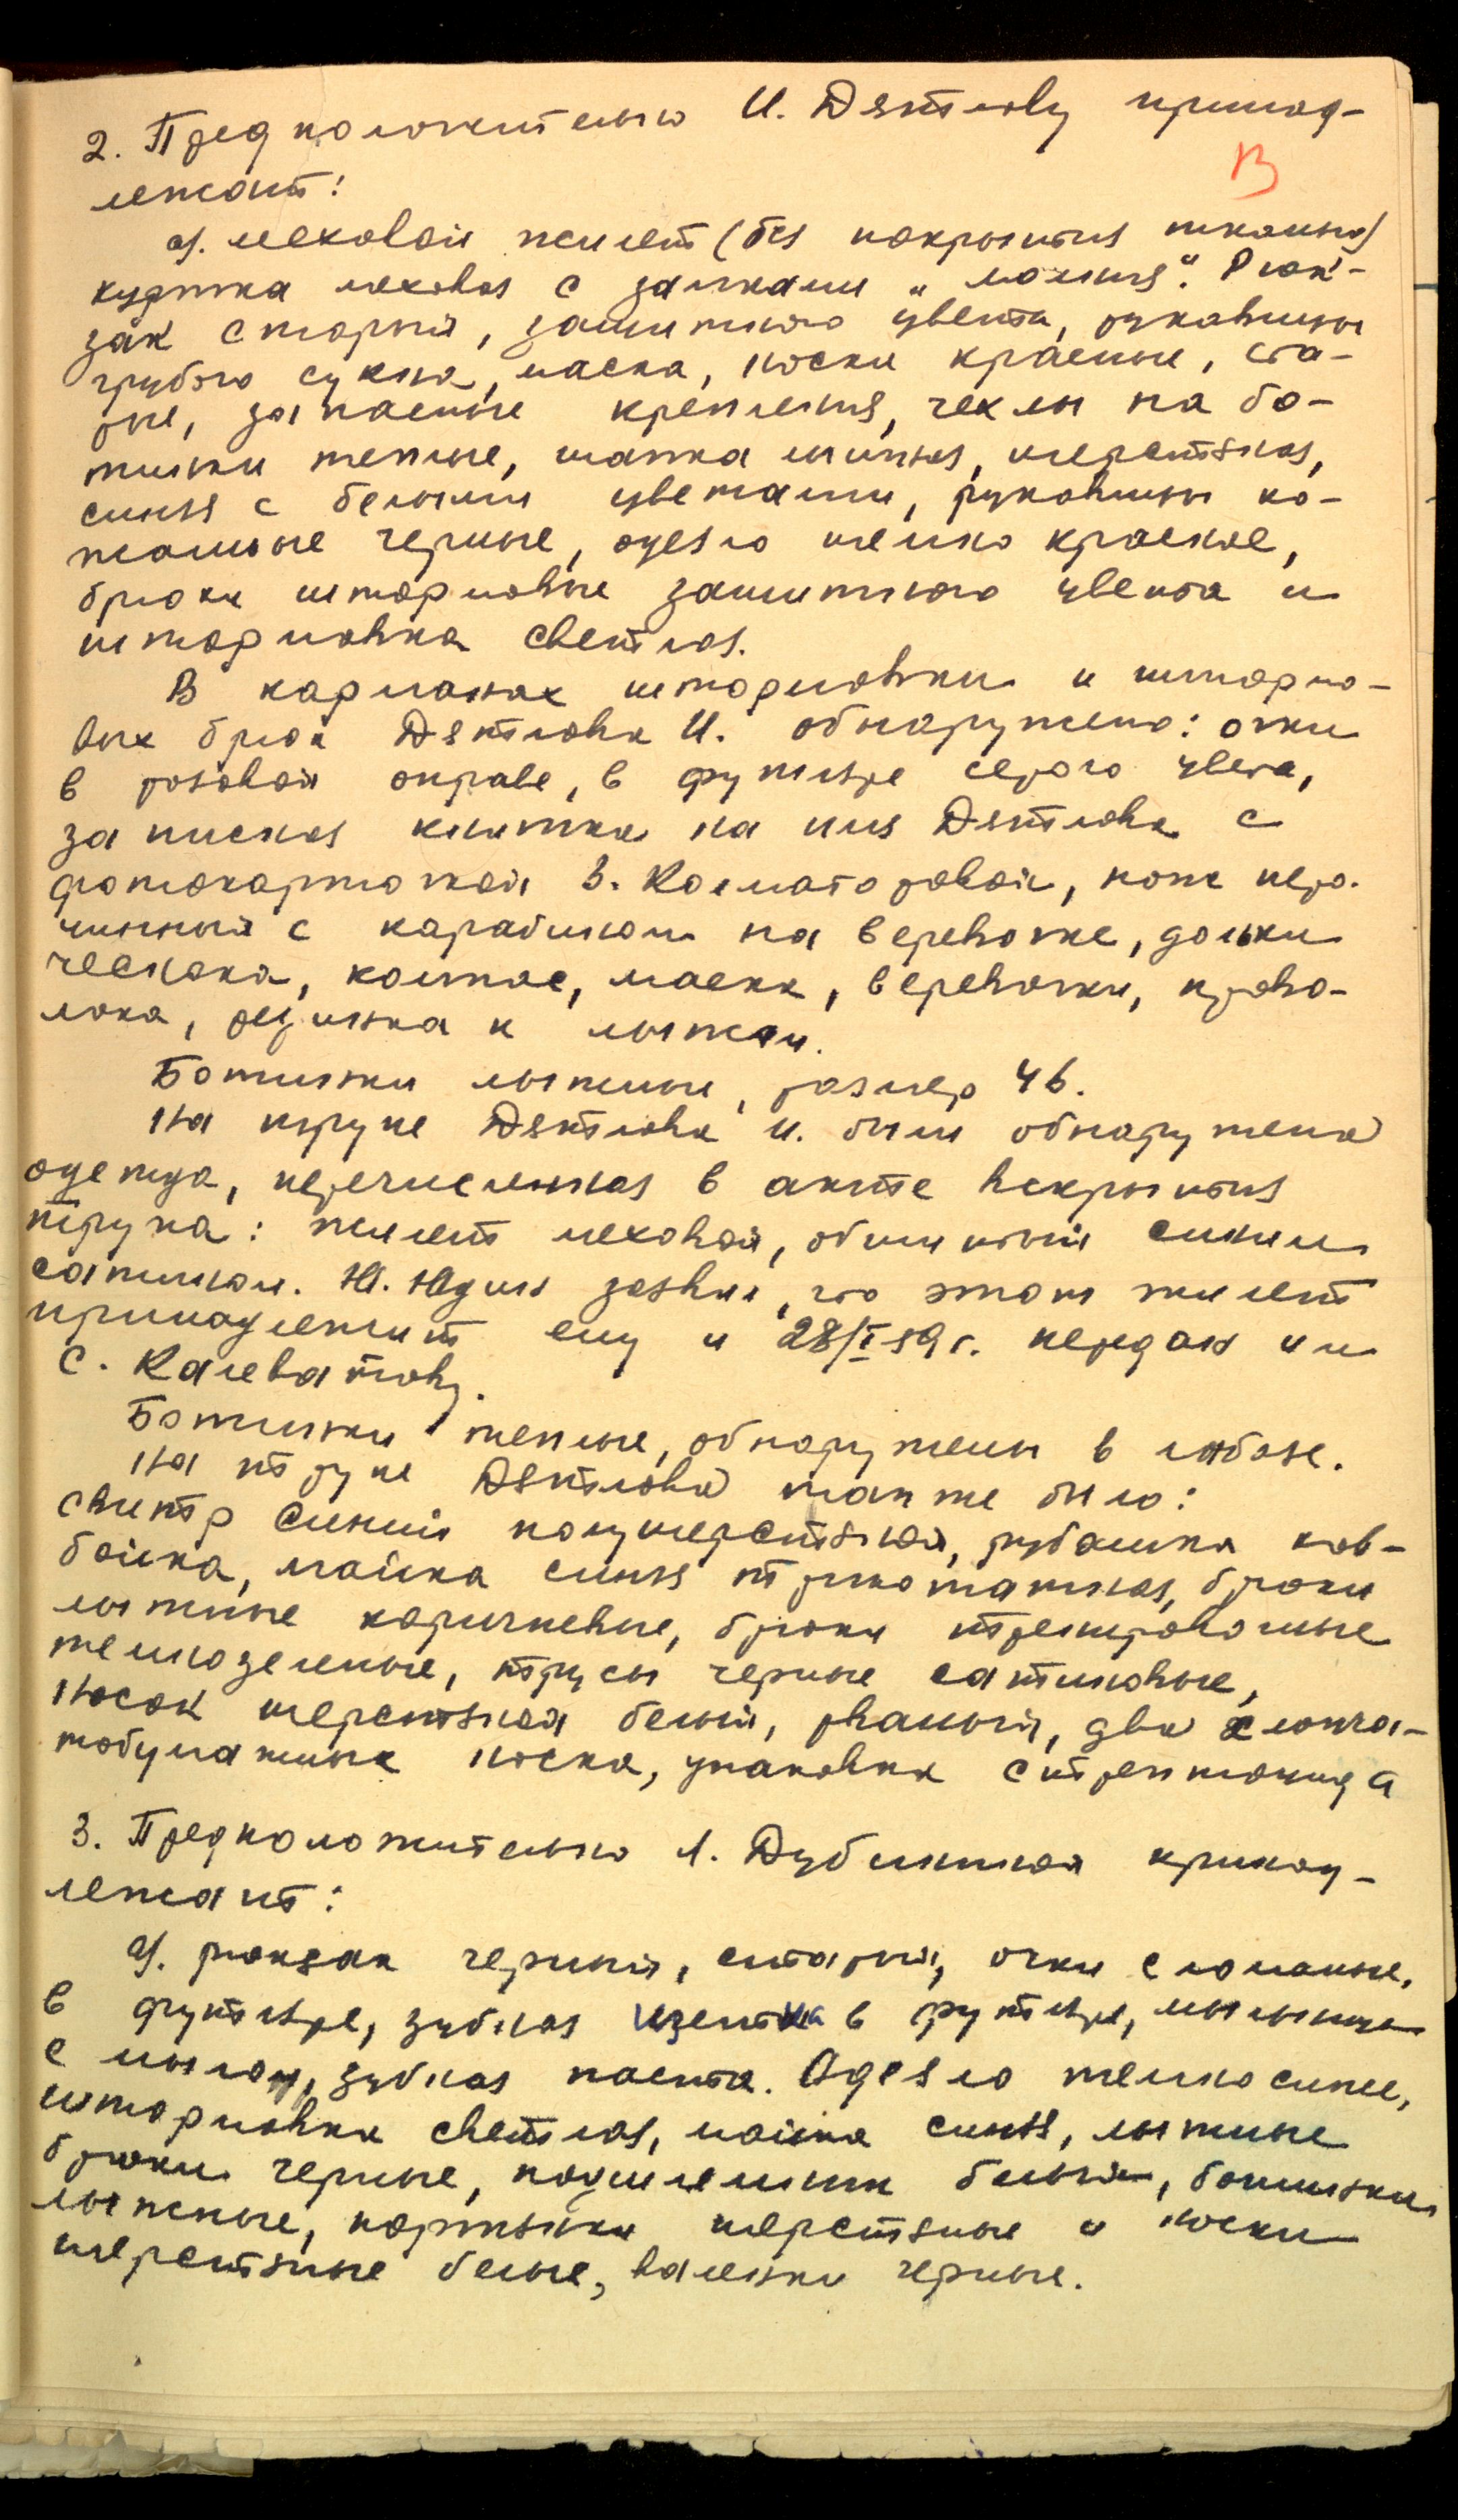 2. Предположительно И. Дятлову принад-
В
лежат:
а/. меховой жилет (без покрытия тканью)
куртка меховая с замками „молния". Рюк-
зак старый, защитного цвета, рукавицы
грубого сукна, маска, носки красные, ста-
рые, запасные крепления, чехлы на бо-
тинки теплые, шапка лыжная, шерстяная,
синяя с белыми цветами, рукавицы ко-
жанные черные, одеяло темно красное,
брюки штормовые защитного цвета и
штормовка светлая.
В карманах штормовки и штормо-
вых брюк Дятлова И. обнаружено: очки
в розовой оправе, в футляре серого цвета,
записная книжка на имя Дятлова с
фотокарточкой З. Колмогоровой, нож перо-
чинный с карабином на веревочке, дольки
чеснока, компас, маска, веревочки, прово-
лока, резинка к лыжам.
Ботинки лыжные, размер 46.
На трупе Дятлова И. была обнаружена
одежда, перечисленная в акте вскрытия
трупа: жилет меховой, обшитый синим
сатином. Ю. Юдин заявил, что этот жилет
принадлежит ему и 28/I 59 г. передан им
С. Колеватову.
Ботинки теплые, обнаружены в лабазе.
На трупе Дятлова также было:
свитр синий полушерстяной, рубашка ков-
бойка, майка синяя трикотажная, брюки
лыжные коричневые, брюки тренировочные
темнозеленые, трусы черные сатиновые,
носок шерстяной белый, рваный, два хлопча-
тобумажных носка, упаковка стрептоцида
3. Предположительно Л. Дубининой принад-
лежат:
а/. рюкзак черный, старый, очки сломаные,
в футляре, зубная щетка в футляре, мыльница
с мылом, зубная паста. Одеяло темносинее,
штормовка светлая, майка синяя, лыжные
брюки черные, подшлемник белый, ботинки
лыжные, портянки шерстяные и носки
шерстяные белые, валенки черные.